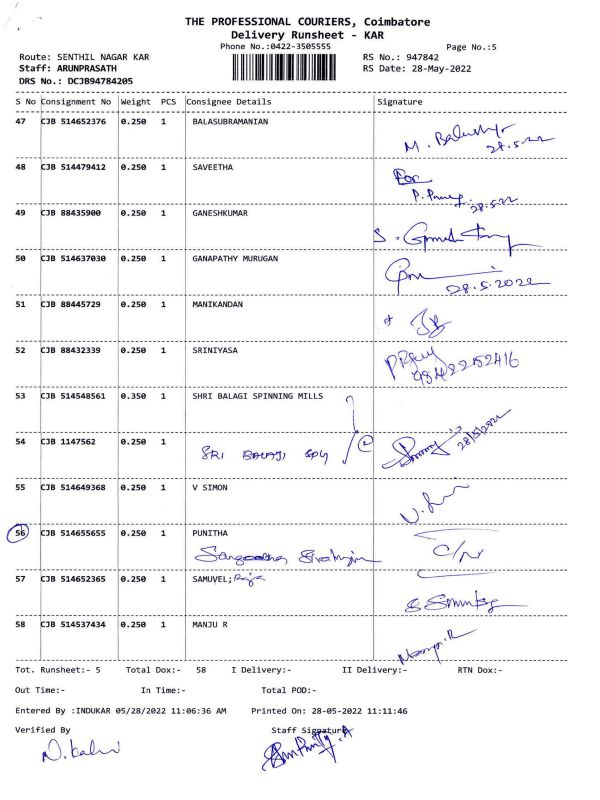 THE PROFESSIONAL COURIERS, Coimbatore
Delivery Runsheet - KAR
Phone No.:0422-3505555
Page No.:5
Route: SENTHIL NAGAR KAR
RS No.: 947842
Staff: ARUNPRASATH
RS Date: 28-May-2022
DRS No.: DCJB94784205
S No Consignment No Weight PCS Consignee Details Signature
47 CJB 514652376 0.250 1 BALASUBRAMANIAN
28.5.22
48 CJB 514479412 0.250 1 SAVEETHA
28.5.22
49 CJB 88435900 0.250 1 GANESHKUMAR
50 CJB 514637030 0.250 1 GANAPATHY MURUGAN
28.5.2022
51 CJB 88445729 0.250 1 MANIKANDAN
52 CJB 88432339 0.250 1 SRINIYASA
53 CJB 514548561 0.350 1 SHRI BALAGI SPINNING MILLS
54 CJB 1147562 0.250 1
SRI BALAJI 28/5/2022
55 CJB 514649368 0.250 1 V SIMON
56 CJB 514655655 0.250 1 PUNITHA
57 CJB 514652365 0.250 1 SAMUVEL;
58 CJB 514537434 0.250 1 MANJU R
Tot. Runsheet:- 5 Total Dox:- 58 I Delivery:- II Delivery:- RTN Dox:-
Out Time:- In Time:- Total POD:-
Entered By :INDUKAR 05/28/2022 11:06:36 AM Printed On: 28-05-2022 11:11:46
Verified By Staff Signature